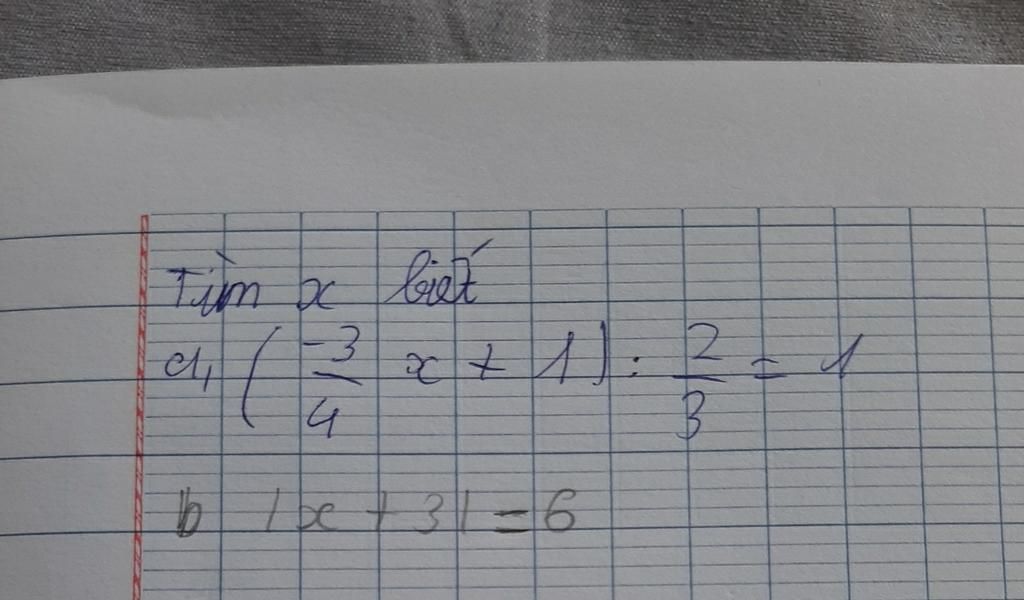 Tìm x biết
a, (-3/4 x + 1) : 2/3 = 1
b |x + 3| = 6